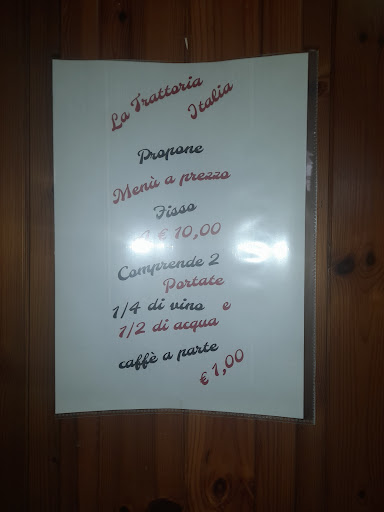 La Trattoria
Italia
Propone
Menù a prezzo
Fisso
€ 10,00
Comprende 2
Portate
1/4 di vino e
1/2 di acqua
caffè a parte
€ 1,00